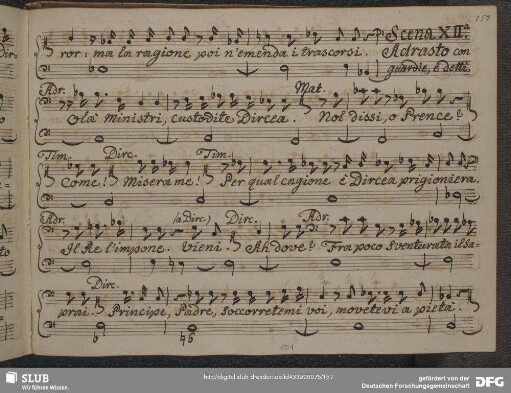 159
Scena XII.a
ror: ma la ragione poi n'emenda i trascorsi. Adrasto con
guardie, e detti
Adr. Mat.
Olà Ministri, custodite Dircea. Nol dissi, o Prence?
Tim. Dirc. Tim.
Come! Misera me! Per qual cagione è Dircea prigioniera.
Adr. (a Dirc.) Dirc. Adr.
Il Re l'impone. Vieni. Ah dove? Fra poco Sventurata il sa-
Dirc.
prai. Principe, Padre, soccorretemi voi, movetevi a pietà.
SLUB
Wir führen Wissen.
gefördert von der
Deutschen Forschungsgemeinschaft
DFG